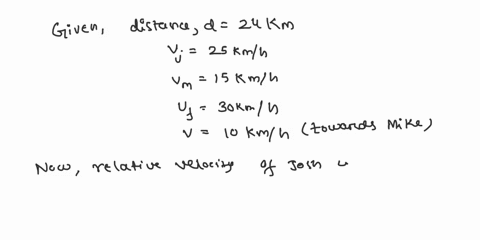 Given, distance, d = 24 Km
Vj = 25 Km/h
Vm = 15 Km/h
Uf = 30 Km/h
V = 10 Km/h (towards Mike)
Now, relative velocity of Josh